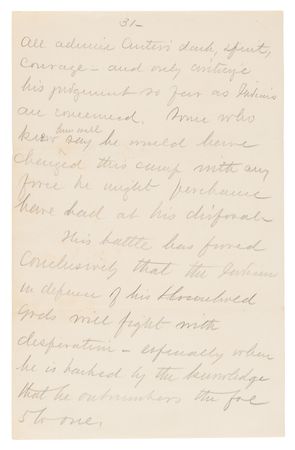 31-
All admire Custer's dash, spirit,
courage - and only critize
his judgement so far as Indians
are concerned. Some who
knew him well say he would have
charged this camp with any
force he might perchance
have had at his disposal -
This battle has proved
conclusively that the Indian
in defence of his household
Gods will fight with
desperation - especially when
he is backed by the knowledge
that he outnumbers the foe
5 to one.